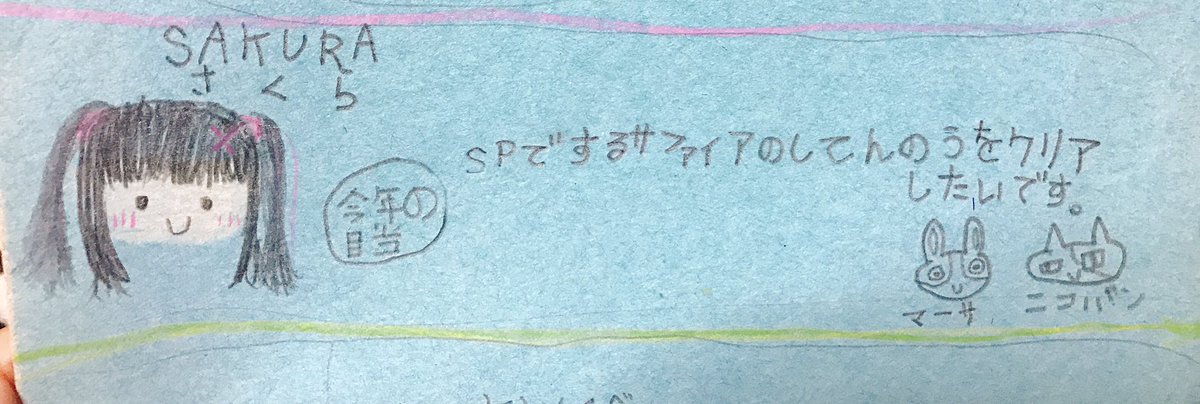 SAKURA
さくら
今年の
目当
SPでするサファイアのしてんのうをクリア
したいです。
マーサ
ニコバン